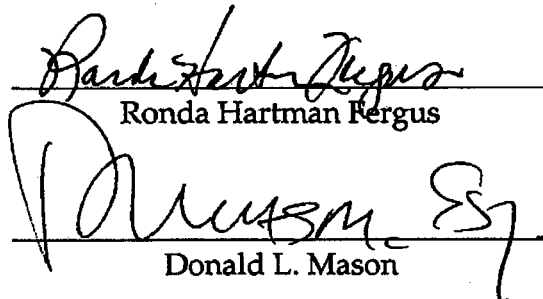 Ronda Hartman Fergus
Ronda Hartman Fergus
D Mason, Esq
Donald L. Mason